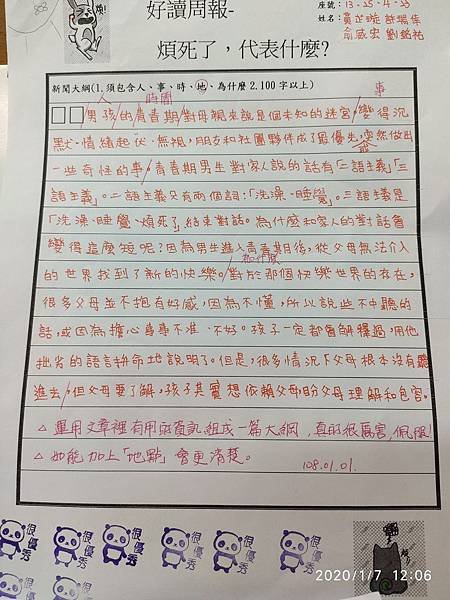 好讀周報-
煩死了，代表什麼？
座號：13-25-4-23
姓名：
新聞大綱(1.須包含人、事、時、地、為什麼 2.100字以上)
人 時間 事
男孩的青春期對母親來說是個未知的迷宮。變得沉
默、情緒起伏、無視，朋友和社團夥伴成了最優先，突然做出
一些奇怪的事。青春期男生對家人說的話有「二語主義」「三
語主義」。二語主義只有兩個詞：「洗澡、睡覺」。三語主義是
「洗澡、睡覺、煩死了」結束對話。為什麼和家人的對話會
變得這麼短呢？因為男生進入青春期後，從父母無法介入
為什麼
的世界找到了新的快樂。對於那個快樂世界的存在，
很多父母並不抱有好感，因為不懂，所以說些不中聽的
話，或因為擔心 不准、不好。孩子一定都會解釋過，用他
拙劣的語言拼命地說明了。但是，很多情況「父母根本沒有聽
進去」。但父母要了解，孩子其實想依賴父母，盼父母理解和包容。
△ 運用文章裡有用的資訊，組成一篇大綱，真的很厲害，佩服！
△ 如能加上「地點」會更清楚。 108.01.01.
很優秀
很優秀
很優秀
很優秀
很優秀
很優秀
很優秀
很優秀
2020/1/7 12:06